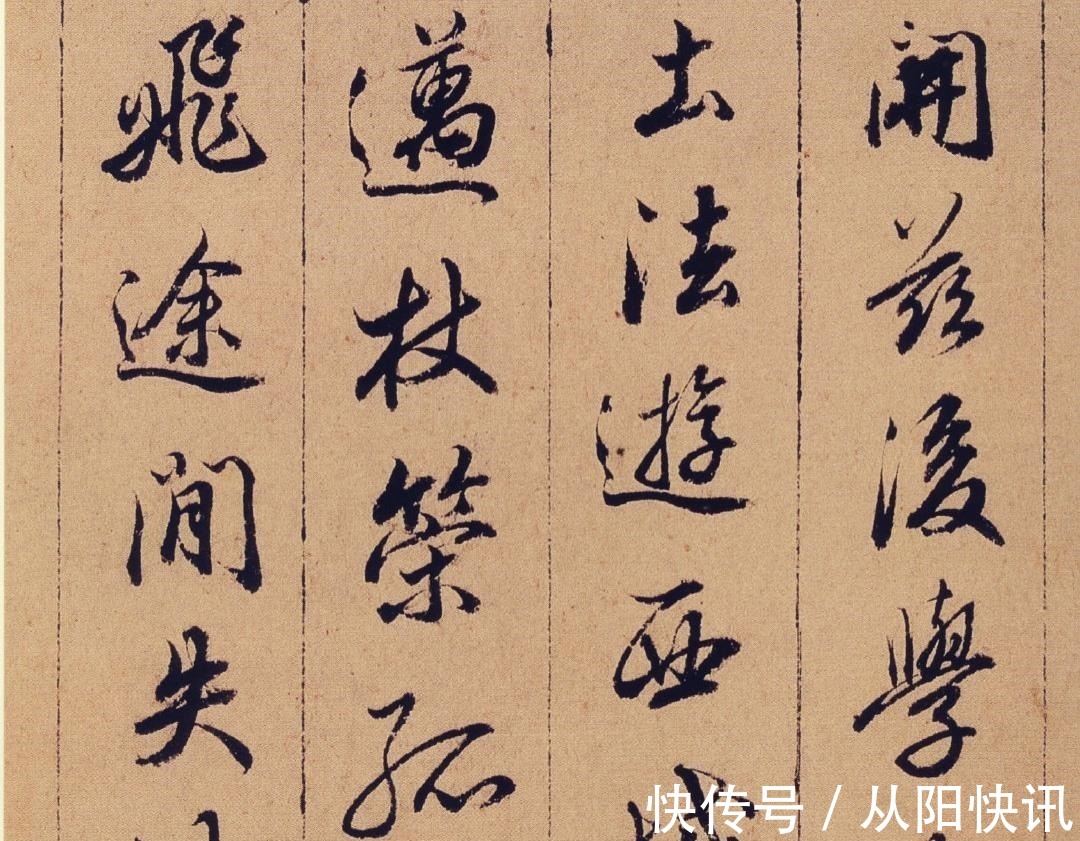 開茲後學
土法遊西
邁杖策孤
飛途閒失
快传号 / 从阳快讯